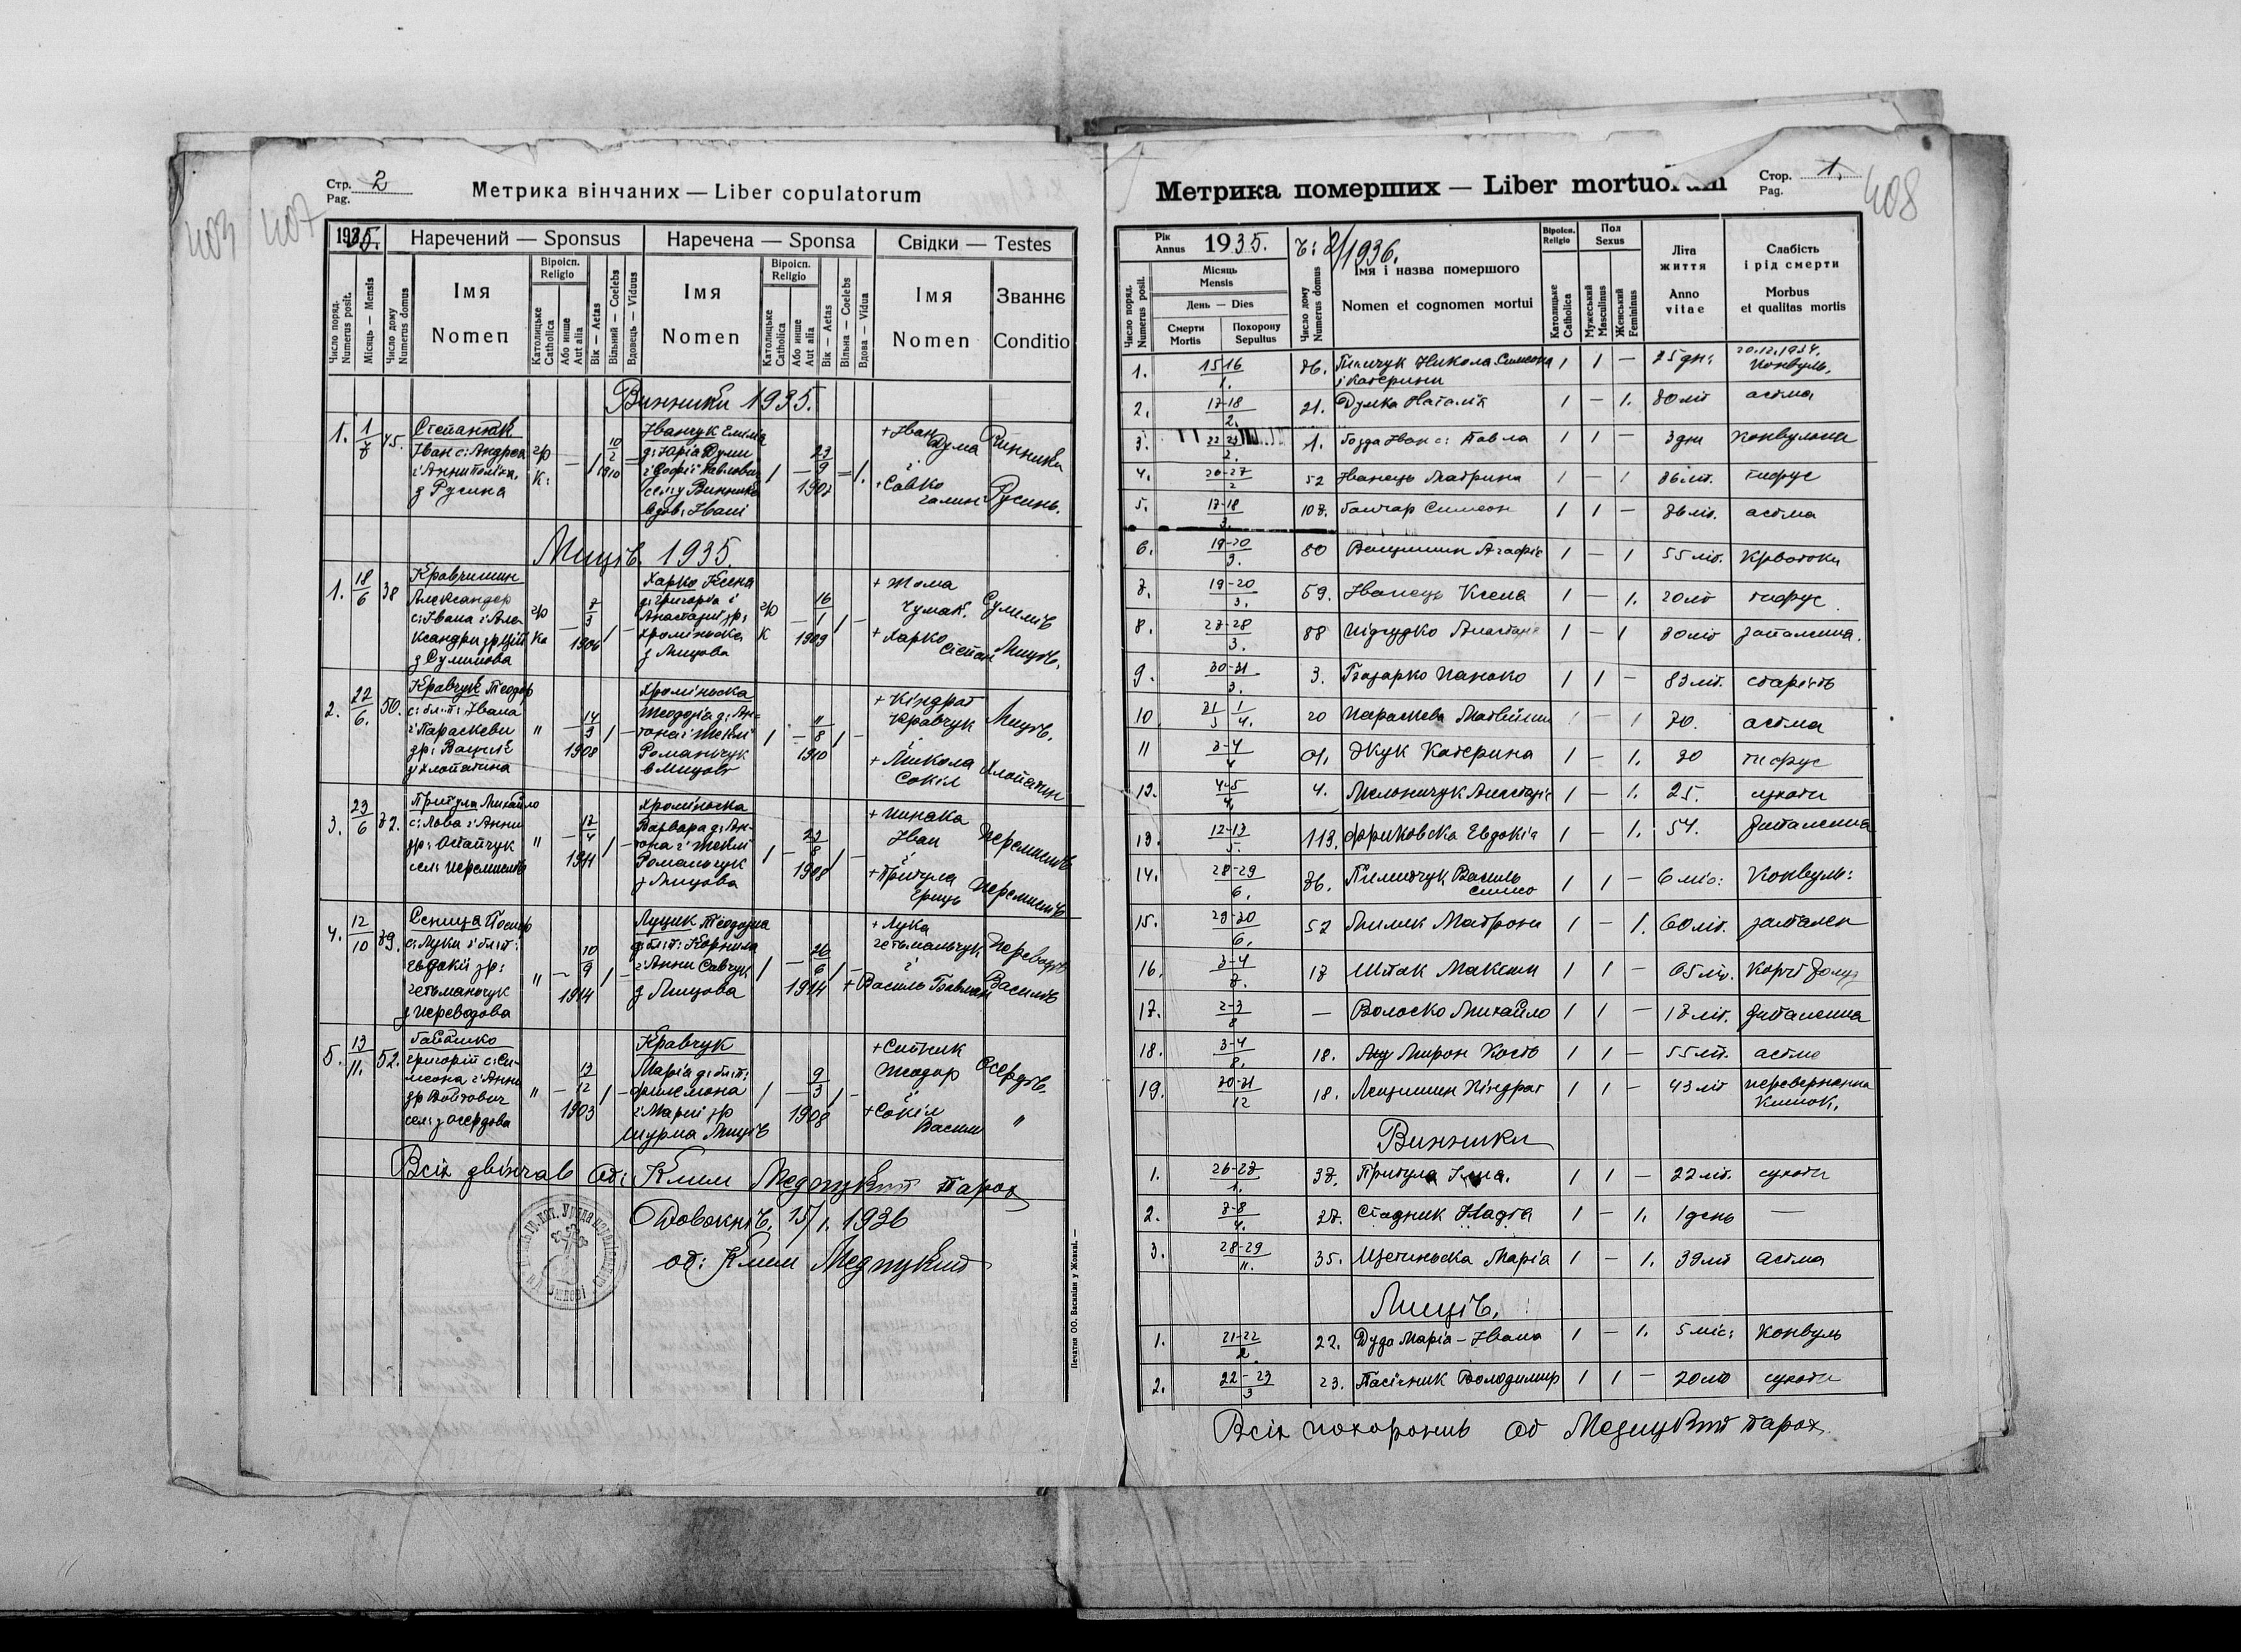 403
407
Стр. 2
Pag.
Метрика вінчаних — Liber copulatorum
1935.
Наречений — Sponsus
Наречена — Sponsa
Свідки — Testes
Число поряд. Numerus posit.
Місяць — Mensis
Число дому Numerus domus
Імя Nomen
Віроісп. Religio
Католицьке Catholica
Або инше Aut alia
Вік — Aetas
Вільний — Coelebs
Вдовець — Viduus
Імя Nomen
Віроісп. Religio
Католицьке Catholica
Або инше Aut alia
Вік — Aetas
Вільна — Coelebs
Вдова — Vidua
Імя Nomen
Званнє Conditio
Винники 1935.
1. 1/7 45. Степанюк Іван с: Андрея і Анни з Русина гр к: 10/2 1910
Іванчук Емілія д: Юрія Думи і Софії 23/9 1907
+ Іван Дума Винники
і Савко Русинь.
Миців 1935.
1. 18/6 38 Кравчишин Александер с: Івана і Александри з Сулимова гр ка 7/3 1906 1 —
Харко Ксеня д: Григорія і Анастазії зр: Хроміньска з Мицова гр к 16/1 1909 1 —
+ Тома Чумак. Сулимів
+ Харко Степан Миців.
2. 22/6. 50. Кравчук Теодор с: бл: п: Івана і Параскеви зр: з Хлопятина " 14/3 1908 1 —
Хроміньска Теодозія д: Антона і Теклі Романчук в Мицові 1 11/8 1910 1 —
+ Кіндрат Кравчук Миців.
+ Микола Сокіл Хлопятин
3. 23/6 72. Притула Михайло с: Лова і Анни зр: Опайчук сел: Перемислів " 17/4 1911 1 —
Хроміньска Варвара д: Антона і Теклі Романчук з Мицова 1 23/8 1908 1 —
+ Іван Перемислів
+ Притула Гриць Перемислів
4. 12/10 79. Сениця Йосиф с: Луки і бл: п: Евдокії зр: Гетьманчук з Переводова " 10/9 1914 1 —
Луцик Теодозія д: бл: п: Корнила і Анни Савчук з Мицова 1 26/6 1914 1 —
+ Лука Гетьманчук Переводів
+ Василь Бавман Василів
5. 13/11. 52. Григорій с: Симеона і Анни зр Войтович сел: з Осердова " 13/12 1903 1 —
Кравчук Марія д: бл: п: Филимона і Марії зр Шурма Миців 1 9/3 1908 1 —
+ Ситник Теодор Осердів.
+ Сокіл Василь "
Всіх звінчав о: Клим Медицкий парох
15/1. 1936
о: Клим Медицкий
Печатня ОО. Василіян у Жовкві. —
Метрика померших — Liber mortuorum
Стор. 1.
Pag.
408
Рік Annus 1935.
Ч: 2/1936.
Число поряд. Numerus posit.
Місяць Mensis
День — Dies
Смерти Mortis
Похорону Sepultus
Число дому Numerus domus
Імя і назва помершого
Nomen et cognomen mortui
Віроісп. Religio
Католицьке Catholica
Пол Sexus
Мужеський Masculinus
Женський Femininus
Літа життя
Anno vitae
Слабість і рід смерти
Morbus et qualitas mortis
1. 15 16/1. 76. Пилипчук Никола Симеона і Катерини 1 1 — 25 дн: 20.12.1934. Конвуль.
2. 17-18/2. 21. Думка Наталія 1 — 1. 80 літ астма
3. 22 23/2. 1. Іван с: Павла 1 1 — 3 дни конвульси
4. 26-27/2 52 Іванець Матрина 1 — 1 86 літ. тифус
5. 17-18/3. 107. Гончар Симеон 1 1 — 76 літ. астма
6. 19-20/3. 80 Ващишин Агафія 1 — 1 55 літ. Крвотоки
7. 19-20/3. 59. Іванець Ксеня 1 — 1. 20 літ тифус
8. 27-28/3. 88 Підгудко Анастазія 1 — 1 80 літ запалення.
9. 30-31/3. 3. Панько 1 1 — 83 літ. старість
10 31/3 1/4. 20 Параскева Матвіїшин 1 — 1 70. астма
11 3-4/4 Жук Катерина 1 — 1. 30 тифус
12. 4-5/4. 4. Мельничук Анастазія 1 — 1. 25. сухоти
13. 12-13/5. 113. Фриковска Евдокія 1 — 1. 54. Запалення
14. 28-29/6. 76. Пилипчук Василь 1 1 — 6 міс: Конвуль:
15. 29-30/6. 52 Матрона 1 — 1. 60 літ. запален
16. 3-4/7. 17 Шпак Максим 1 1 — 65 літ. корчі
17. 2-3/8 — Волоско Михайло 1 1 — 17 літ. Запалення
18. 3-4/8. 18. Мирон Кость 1 1 — 55 літ. астма
19. 20-21/12 18. Лещишин Кіндрат 1 1 — 43 літ перевернання кишок.
Винники
1. 26-27/1. 37. Притула Ілля. 1 1 — 22 літ. сухоти
2. 7-8/4. 37. Стадник Надія 1 — 1. 1 день —
3. 28-29/11. 35. Щетиньска Марія 1 — 1. 39 літ астма
Миців.
1. 21-22/2. 22. Дуда Марія - Івана 1 — 1. 5 міс: конвуль
2. 22-23/3 23. Пасічник Володимир 1 1 — 20 літ сухоти
Всіх похоронив о Медицкий парох